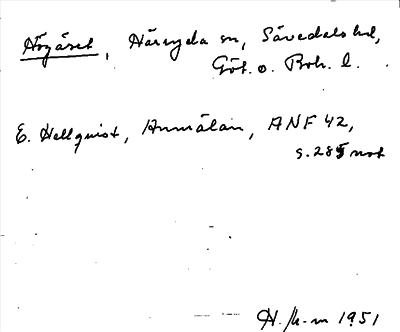 Högåset, Härryda sn, Sävedals hd,
Göt. o. Boh. l.
E. Hellquist, Anmälan, ANF 42,
s. 285 not
H. 1951